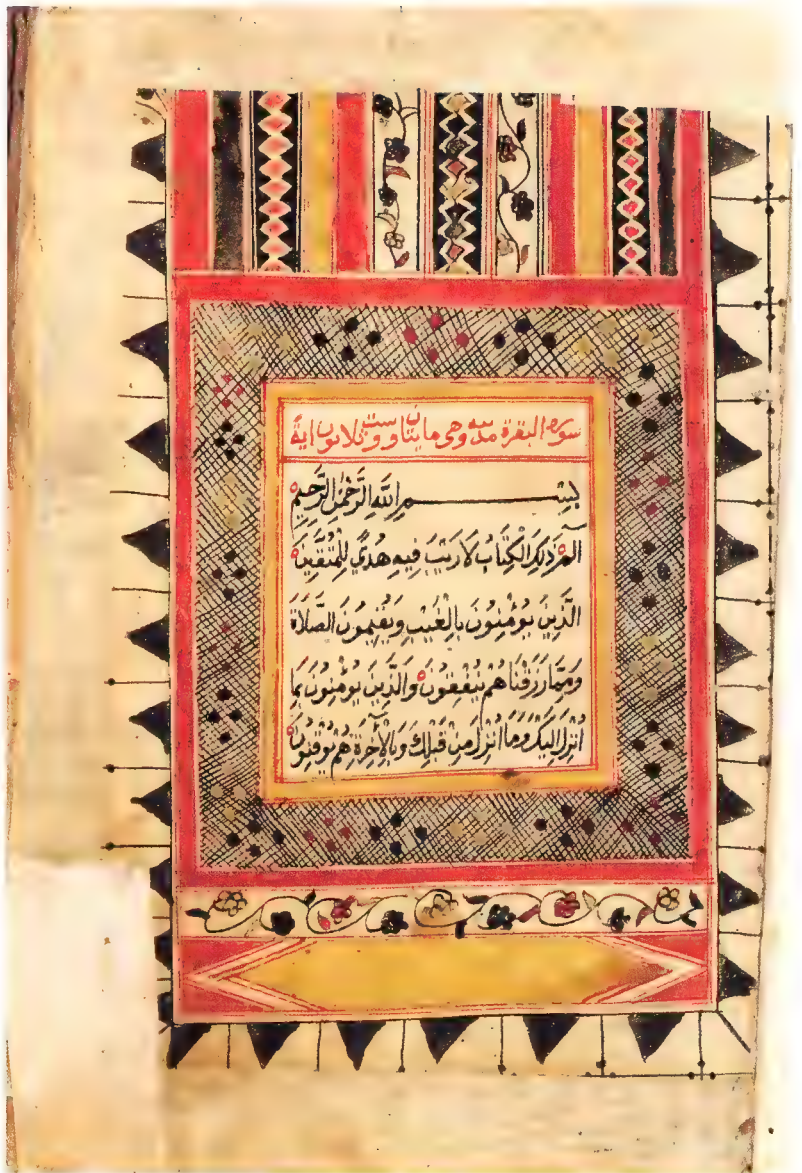 سورة البقرة مدنية وهي مايتان وست وثلاثون اية
بِسْمِ اللَّهِ الرَّحْمَٰنِ الرَّحِيمِ
الٓمٓ ذَلِكَ الْكِتَابُ لَا رَيْبَ فِيهِ هُدًى لِلْمُتَّقِينَ
الَّذِينَ يُؤْمِنُونَ بِالْغَيْبِ وَيُقِيمُونَ الصَّلَاةَ
وَمِمَّا رَزَقْنَاهُمْ يُنْفِقُونَ وَالَّذِينَ يُؤْمِنُونَ بِمَا
أُنْزِلَ إِلَيْكَ وَمَا أُنْزِلَ مِنْ قَبْلِكَ وَبِالْآخِرَةِ هُمْ يُوقِنُونَ